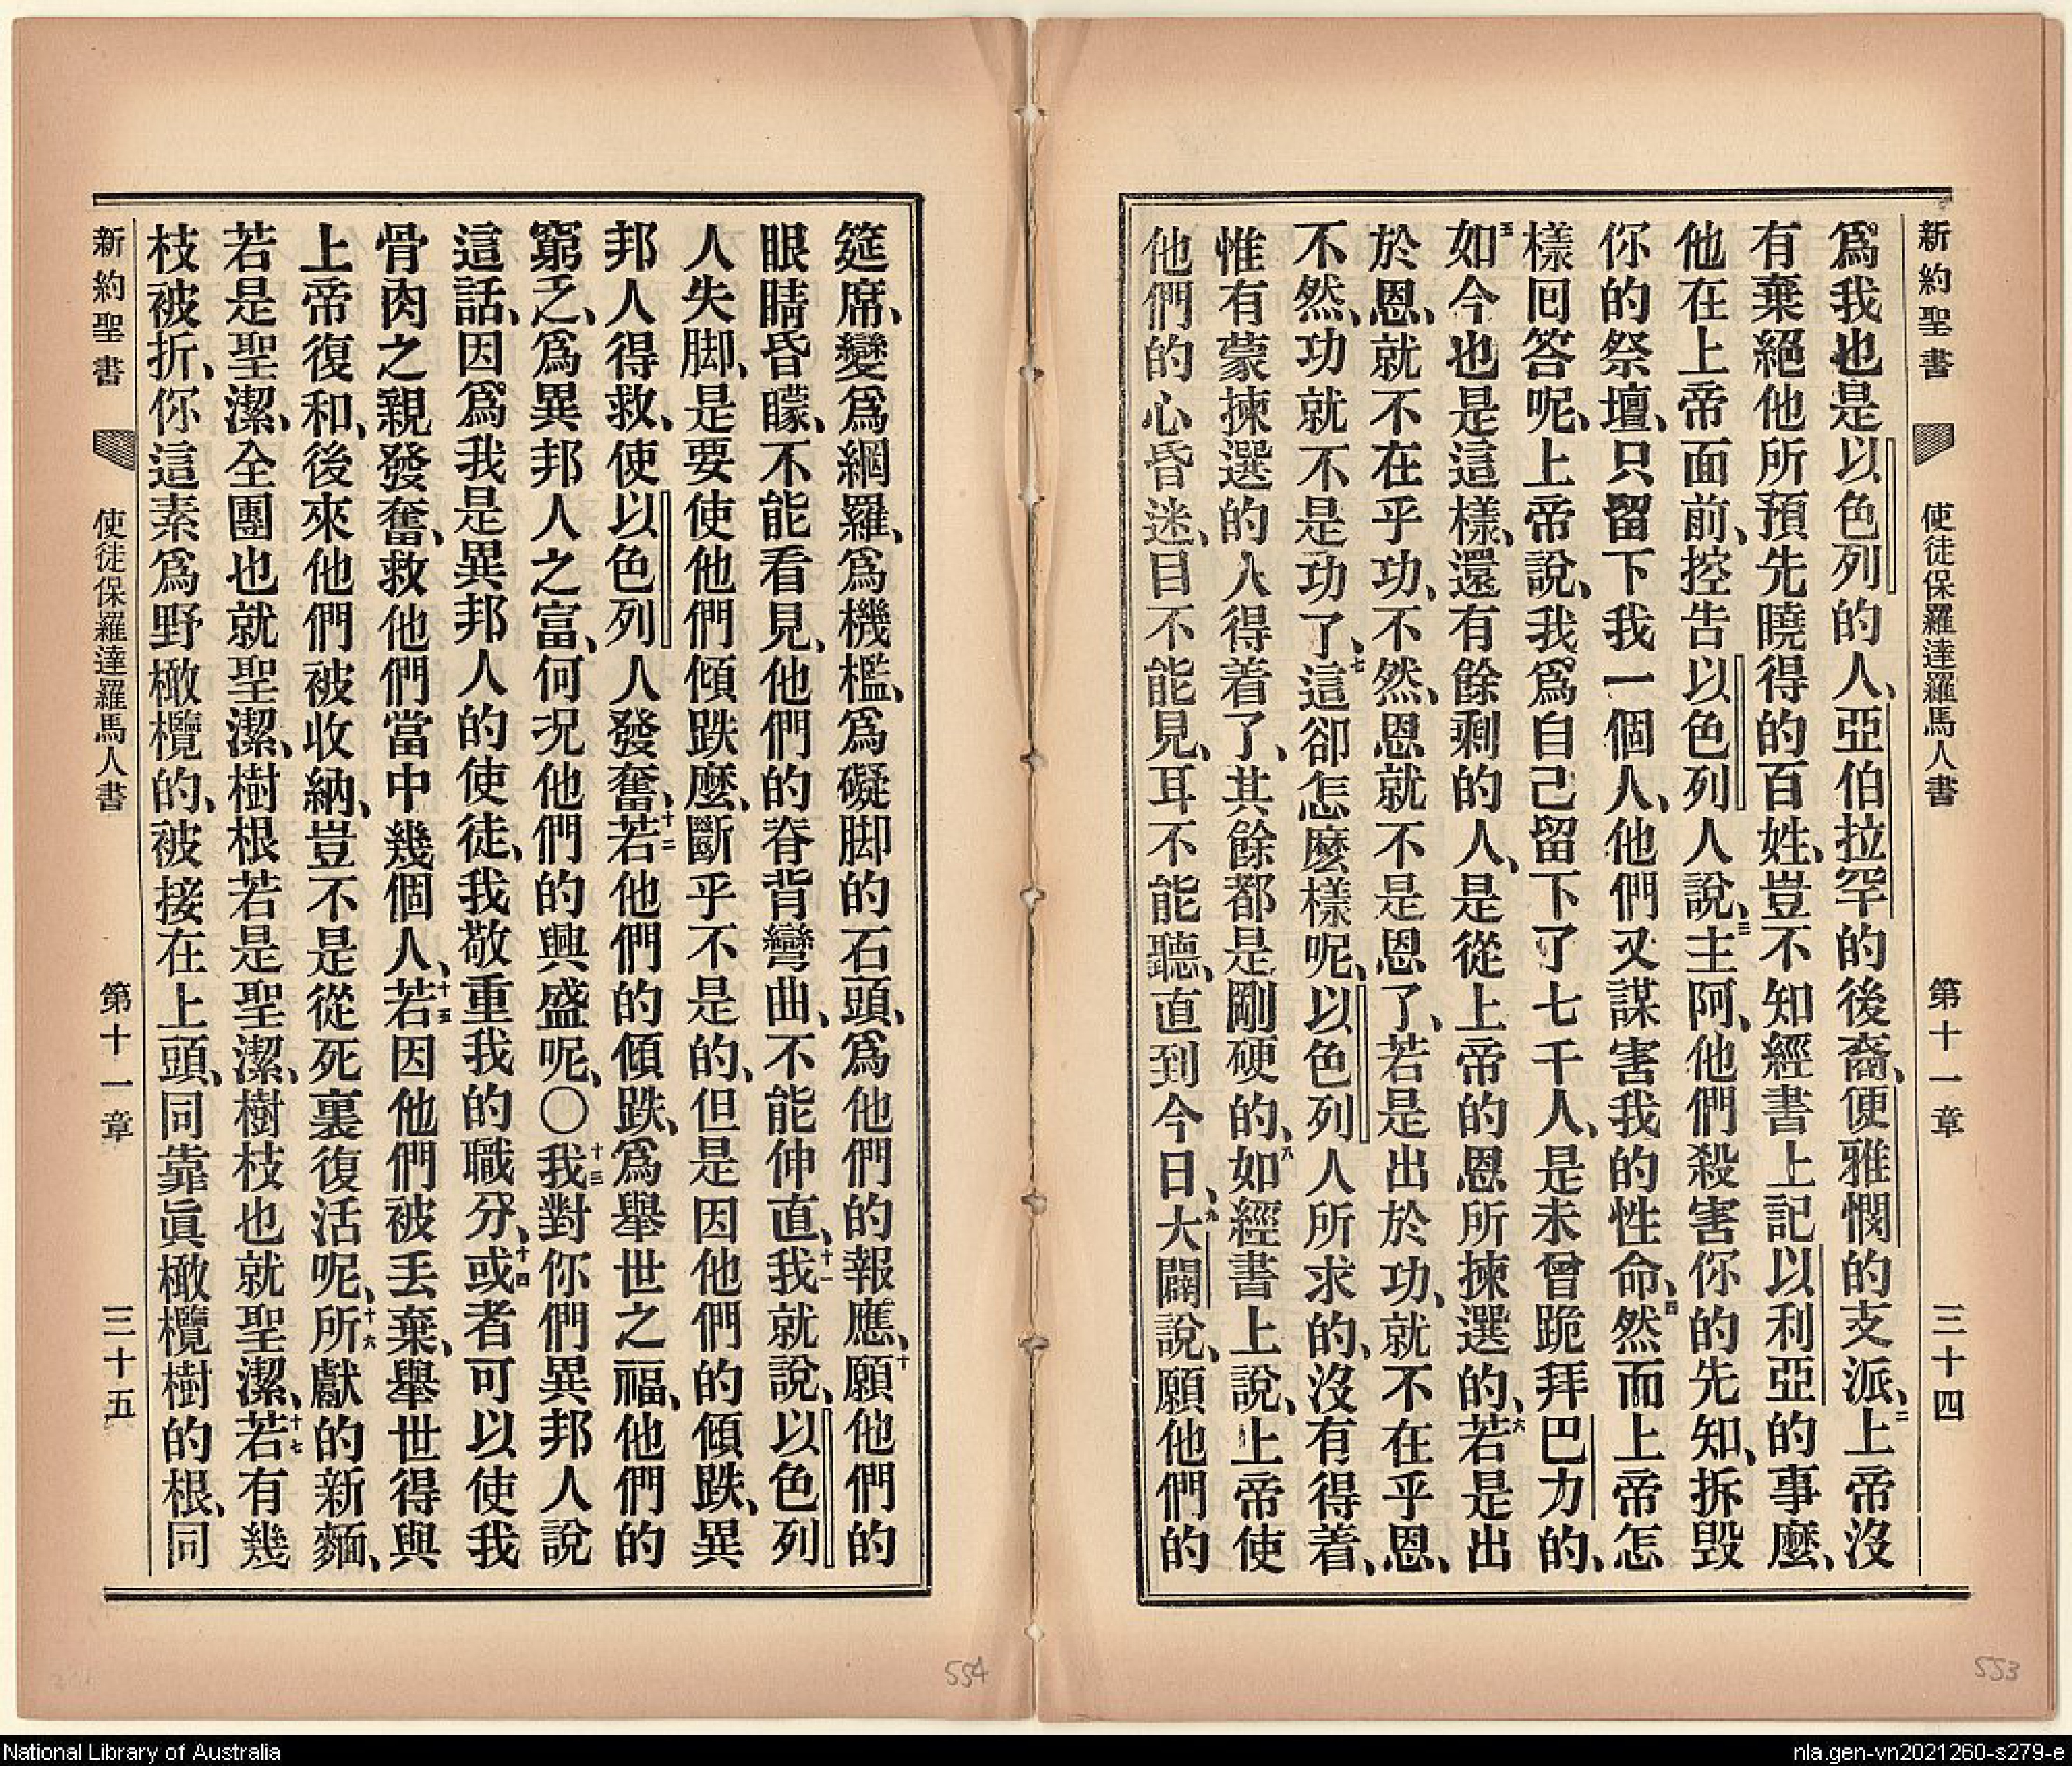 新約聖書 使徒保羅達羅馬人書 第十一章 三十四
爲我也是以色列的人、亞伯拉罕的後裔、便雅憫的支派、二上帝沒
有棄絕他所預先曉得的百姓、豈不知經書上記以利亞的事麽、
他在上帝面前、控告以色列人說、三主阿、他們殺害你的先知、拆毀
你的祭壇、只留下我一個人、他們又謀害我的性命、四然而上帝怎
樣囘答呢、上帝說、我爲自己留下了七千人、是未曾跪拜巴力的、
五如今也是這樣、還有餘剩的人、是從上帝的恩所揀選的、六若是出
於恩、就不在乎功、不然、恩就不是恩了、若是出於功、就不在乎恩、
不然、功就不是功了、七這卻怎麽樣呢、以色列人所求的、沒有得着、
惟有蒙揀選的人得着了、其餘都是剛硬的、八如經書上說、上帝使
他們的心昏迷、目不能見、耳不能聽、直到今日、九大闢說、願他們的
筵席、變爲網羅、爲機檻、爲礙脚的石頭、爲他們的報應、十願他們的
眼睛昏矇、不能看見、他們的脊背彎曲、不能伸直、十一我就說、以色列
人失脚、是要使他們傾跌麽、斷乎不是的、但是因他們的傾跌、異
邦人得救、使以色列人發奮、十二若他們的傾跌、爲舉世之福、他們的
窮乏、爲異邦人之富、何况他們的興盛呢、〇十三我對你們異邦人說
這話、因爲我是異邦人的使徒、我敬重我的職分、十四或者可以使我
骨肉之親發奮、救他們當中幾個人、十五若因他們被丟棄、舉世得與
上帝復和、後來他們被收納、豈不是從死裏復活呢、十六所獻的新麵、
若是聖潔、全團也就聖潔、樹根若是聖潔、樹枝也就聖潔、十七若有幾
枝被折、你這素爲野橄欖的、被接在上頭、同靠眞橄欖樹的根、同
新約聖書 使徒保羅達羅馬人書 第十一章 三十五
554
553
National Library of Australia
nla.gen-vn2021260-s279-e